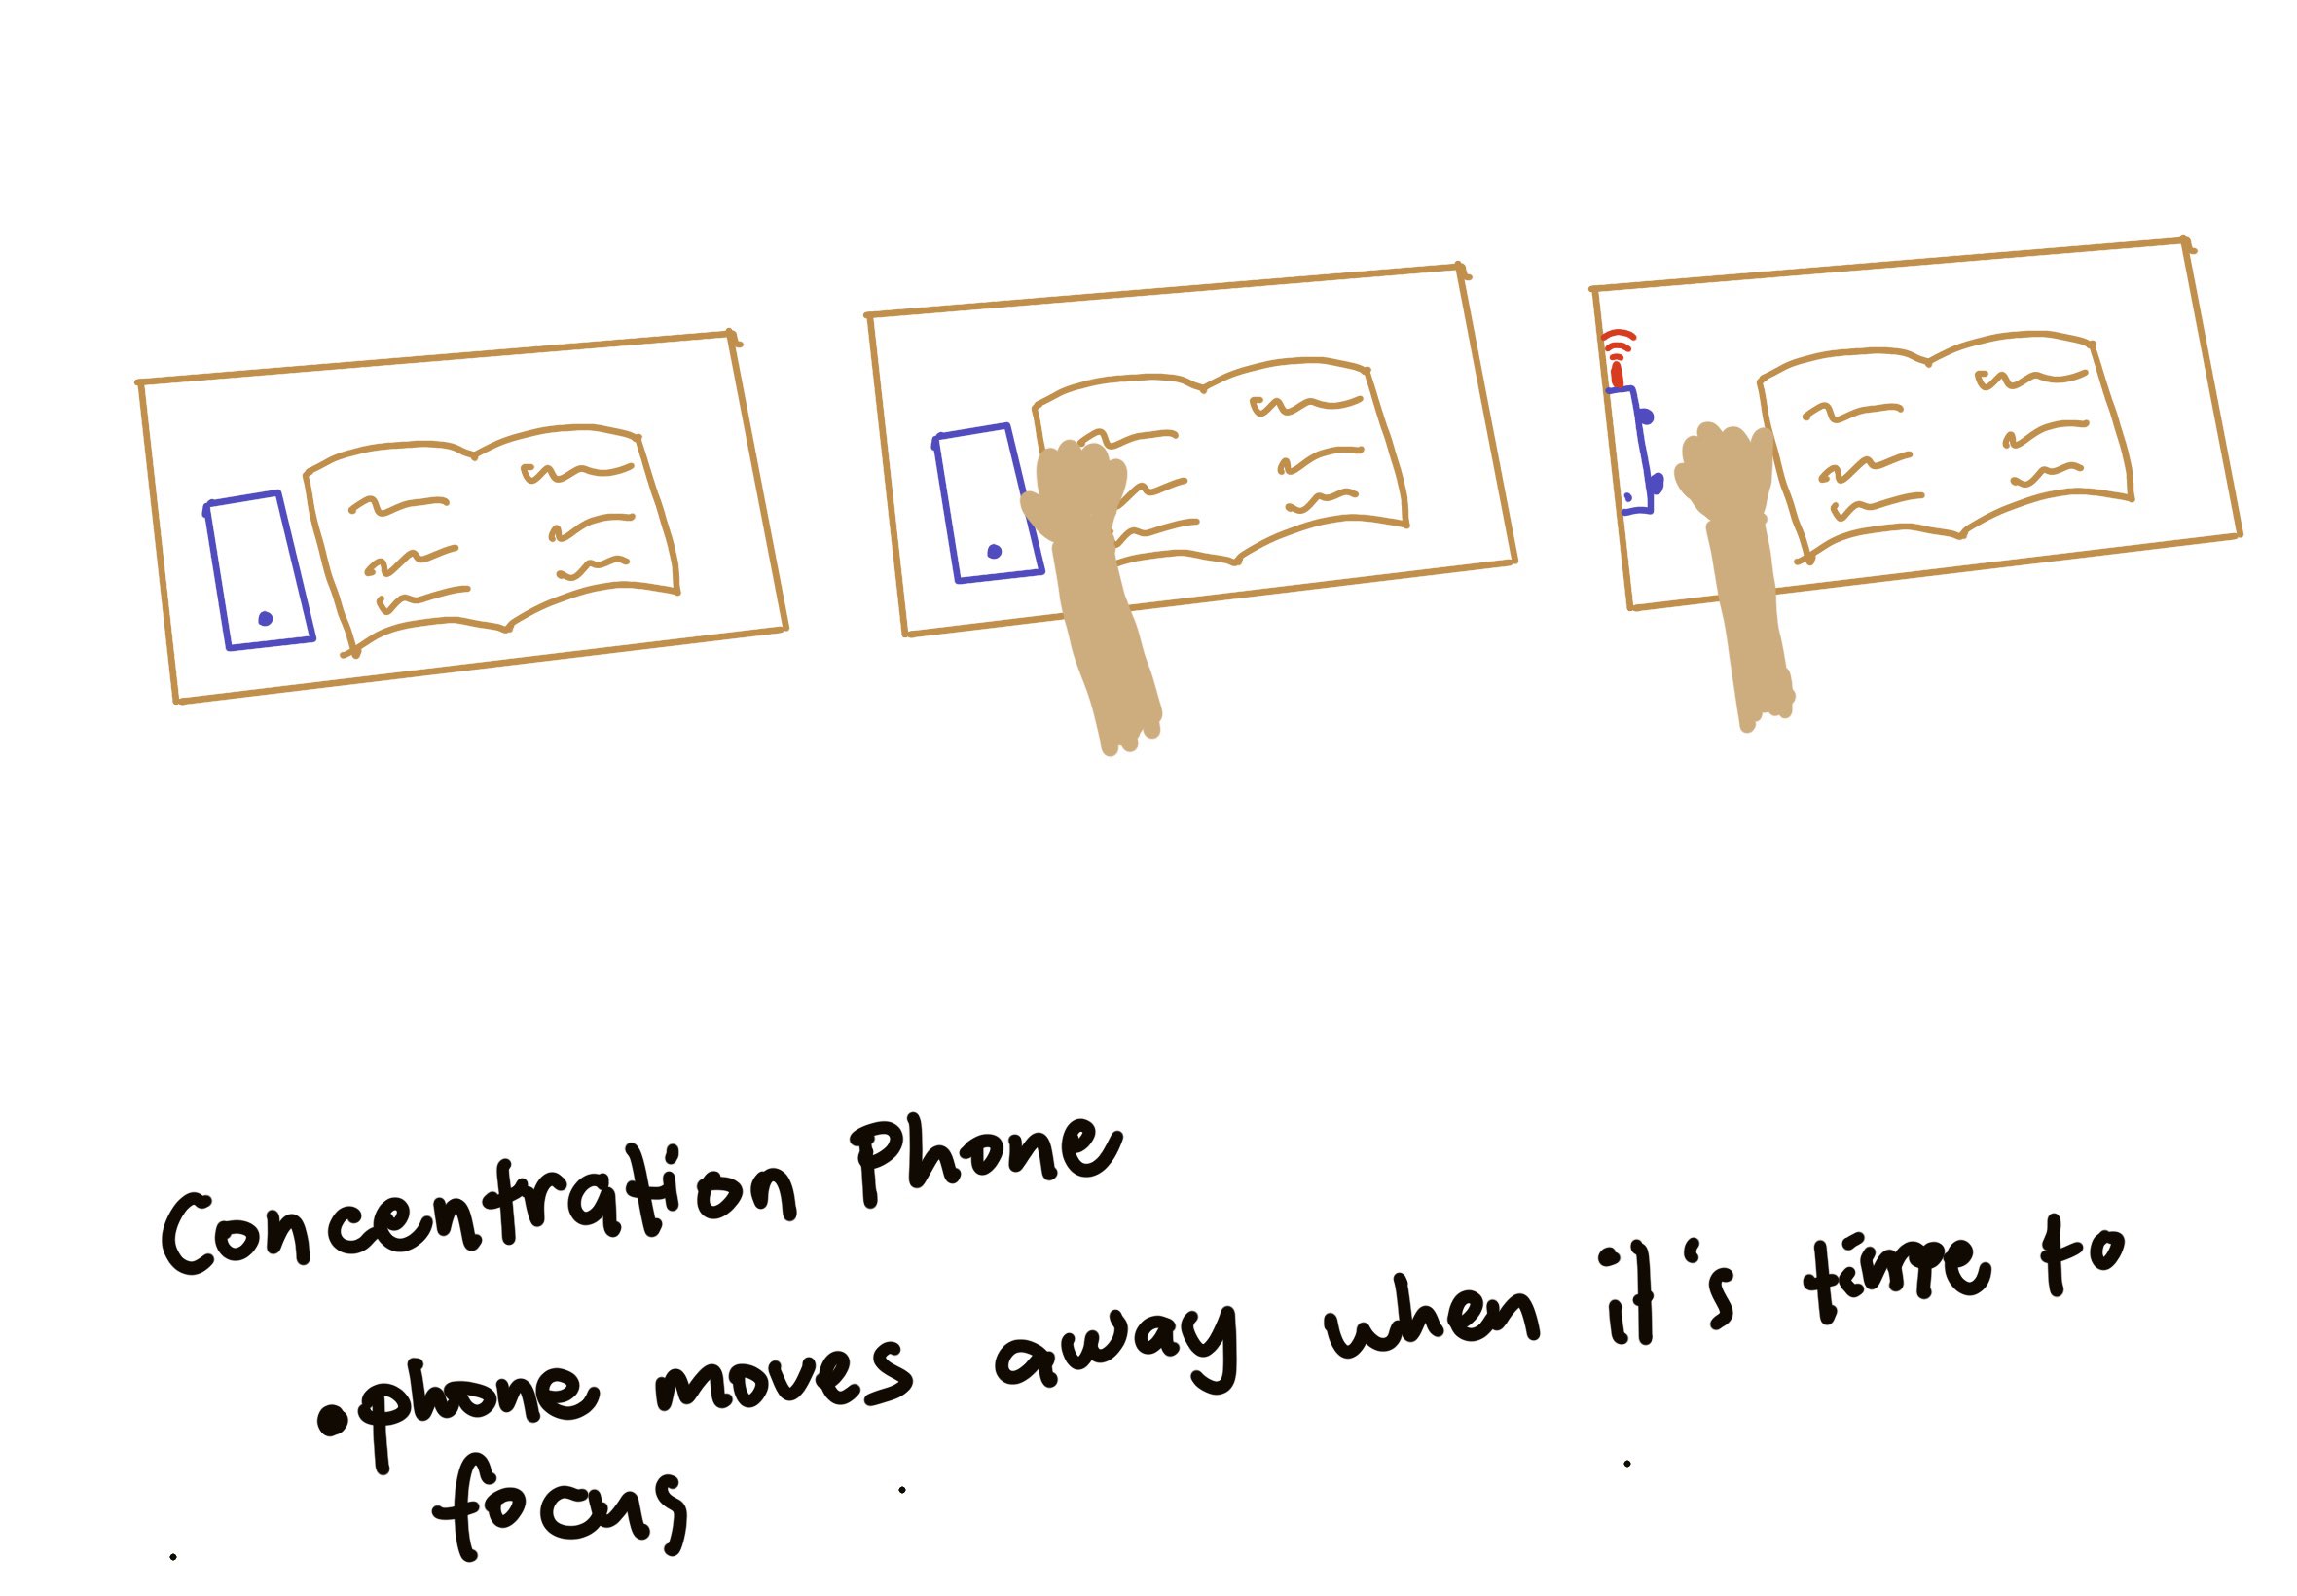 Concentration Phone
• phone moves away when it's time to
focus